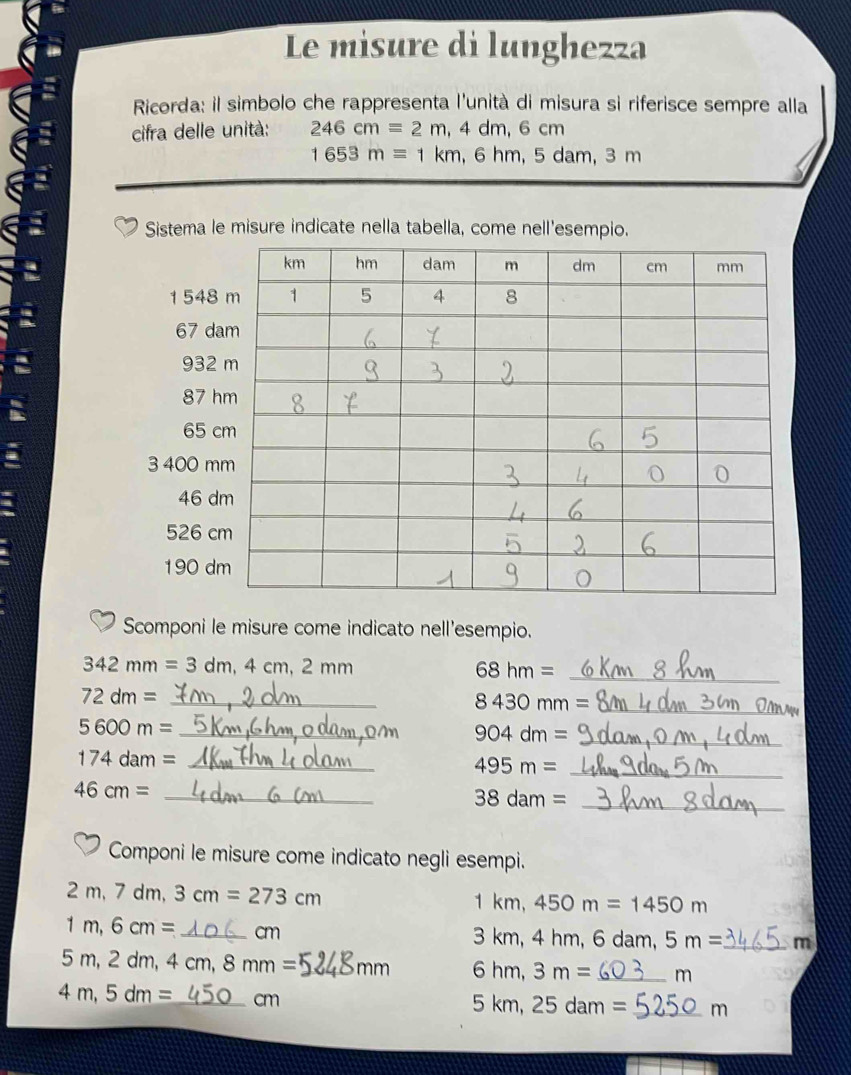 Le misure di lunghezza
Ricorda: il simbolo che rappresenta l'unità di misura si riferisce sempre alla
cifra delle unità: 246 cm = 2 m, 4 dm, 6 cm
1 653 m = 1 km, 6 hm, 5 dam, 3 m
Sistema le misure indicate nella tabella, come nell'esempio.
km hm dam m dm cm mm
1 548 m 1 5 4 8
67 dam 6 7
932 m 9 3 2
87 hm 8 7
65 cm 6 5
3 400 mm 3 4 0 0
46 dm 4 6
526 cm 5 2 6
190 dm 1 9 0
Scomponi le misure come indicato nell'esempio.
342 mm = 3 dm, 4 cm, 2 mm
72 dm = 7m, 2 dm
5 600 m = 5 Km, 6 hm, 0 dam, 0 m
174 dam = 1Km 7hm 4 dam
46 cm = 4 dm 6 cm
68 hm = 6 Km 8 hm
8 430 mm = 8m 4 dm 3 cm 0mm
904 dm = 9 dam, 0 m, 4 dm
495 m = 4hm 9 dam 5 m
38 dam = 3 hm 8 dam
Componi le misure come indicato negli esempi.
2 m, 7 dm, 3 cm = 273 cm
1 m, 6 cm = 106 cm
5 m, 2 dm, 4 cm, 8 mm = 5248 mm
4 m, 5 dm = 450 cm
1 km, 450 m = 1450 m
3 km, 4 hm, 6 dam, 5 m = 3465 m
6 hm, 3 m = 603 m
5 km, 25 dam = 5250 m